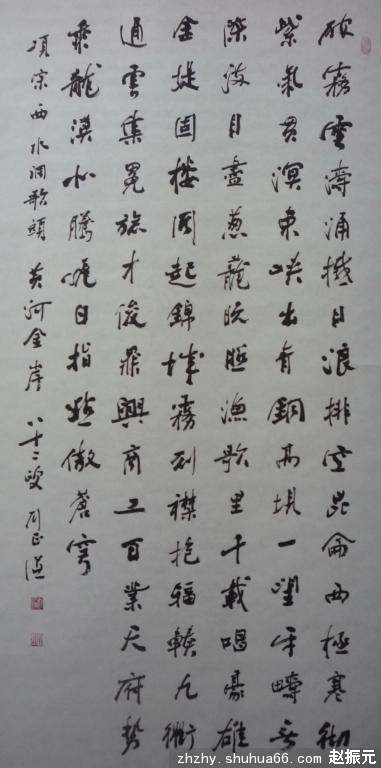 破霧雲濤涌撼日浪排空昆侖西極寒徹
紫氣貫溟東峽出青銅高垻一望平疇無
際放目盡葱蘢晚照漁歌里千載唱豪雄
金堤固樓閣起錦城霧列襟抱輻輳九衢
通雲集冕旒才俊鼎興商工百業天府勢
乘龍漠北騰飛日指點傲蒼穹
項宗西水調歌頭 黄河金岸 八十二叟 劉正謙
zhzhy.shuhua66.com 赵振元